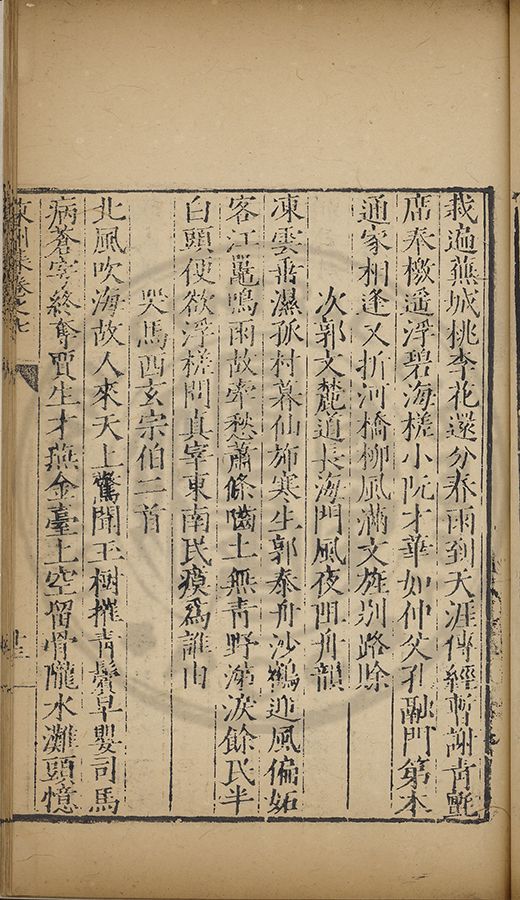 栽遍蕪城桃李花還分春雨到天涯傳經暫謝青氊
席奉檄遥浮碧海槎小阮才華如仲父孔融門第本
通家相逢又折河橋柳風滿文旌别路賒
次郭文麓道長海門風夜問舟韻
凍雲垂濕孤村暮仙斾寒生郭泰舟沙鶴迎風偏妬
客江鼉鳴雨故牽愁蕭條鹵土無青野涕淚餘民半
白頭便欲浮槎問真宰東南民瘼爲誰由
哭馬西玄宗伯二首
北風吹海故人來天上驚聞玉樹摧青鬢早嬰司馬
病蒼穹終奪賈生才燕金臺上空留骨隴水灘頭憶
集卷之七